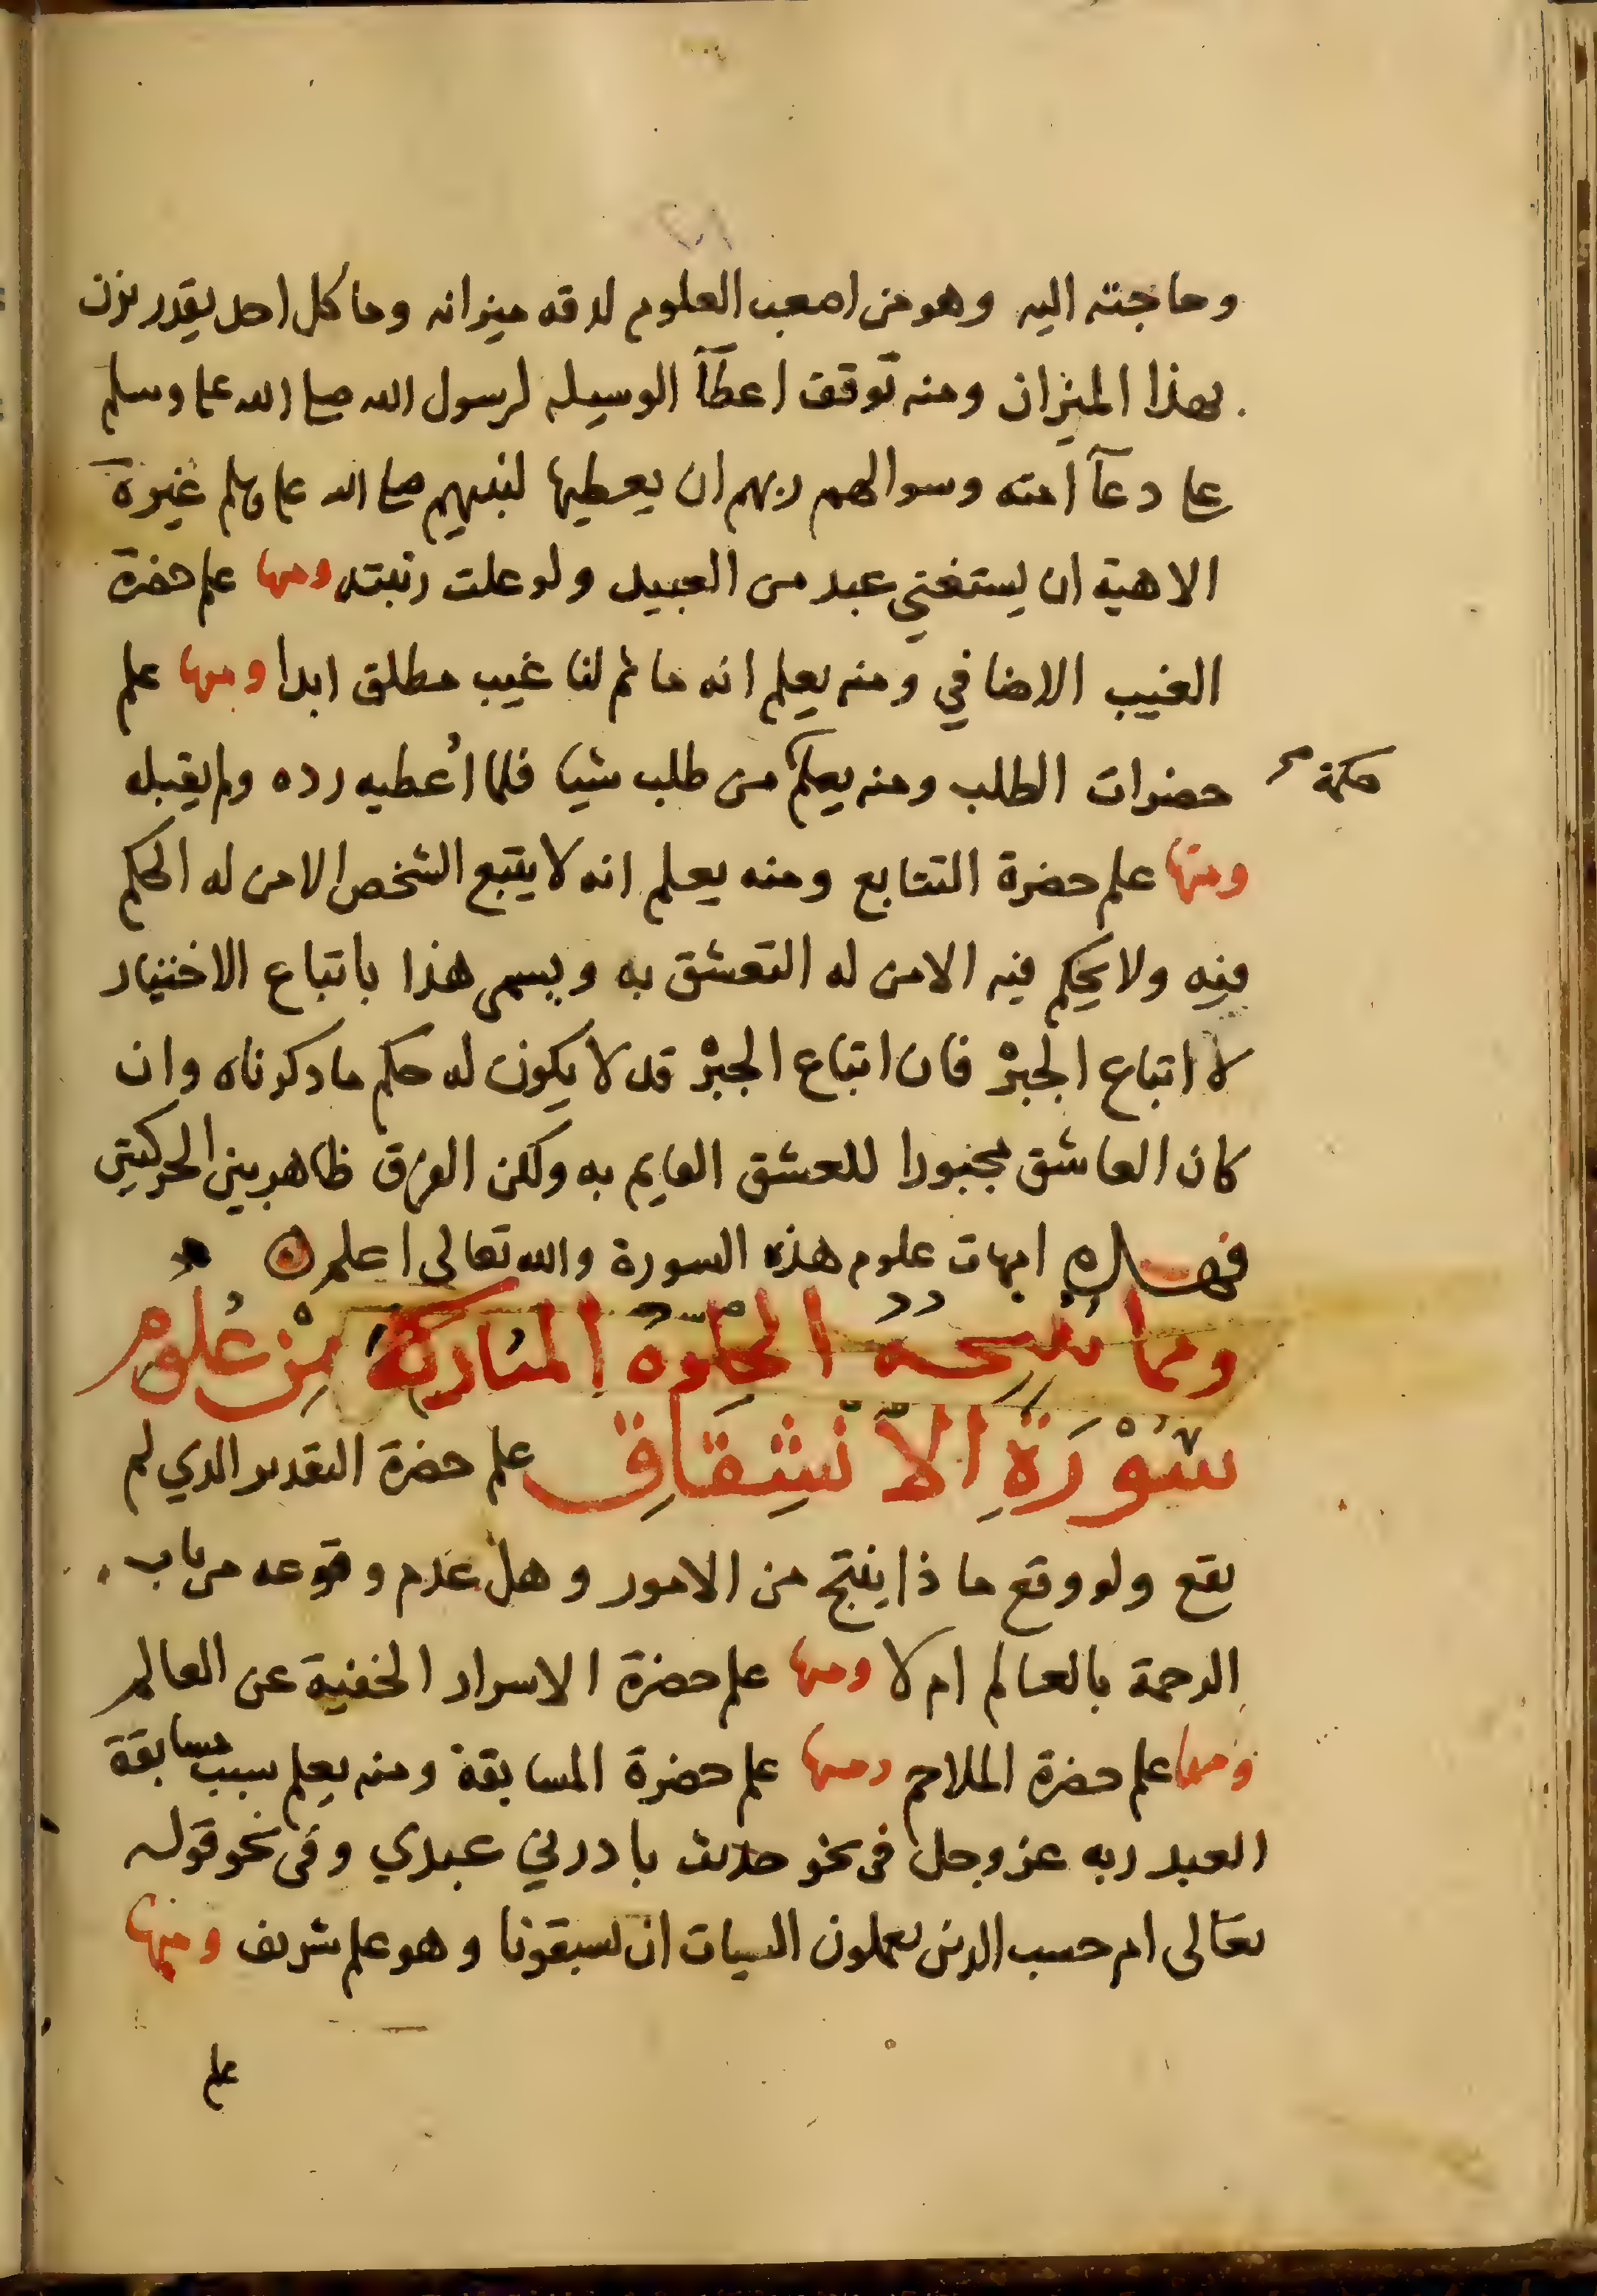 وحاجته اليه وهو من اصعب العلوم لدقه ميزانه وما كل احد يقدر يزن
بهذا الميزان ومنه توقف اعطآ الوسيله لرسول الله صلى الله علىه وسلم
على دعآ امته وسوالهم ربهم ان يعطيها لنبيهم صلى الله علىه وسلم غيرة
الاهية ان يستغني عبد من العبيد ولو علت رتبته ومنها علم حضرة
الغيب الاضافي ومنه يعلم انه ما ثم لنا غيب مطلق ابدا ومنها علم
حضرات الطلب ومنه يعلم من طلب شيا فلما اُعطيه رده ولم يقبله
حكمة
ومنها علم حضرة التتابع ومنه يعلم انه لا يتبع الشخص الا من له الحكم
فيه ولا يحكم فيه الا من له التعشق به ويسمى هذا باتباع الاختيار
لا اتباع الجبْر فان اتباع الجبْر قد لا يكون له حكم ما دكرناه وان
كان العاشق مجبورا للعشق القايم به ولكن الفرق ظاهر بين الحركتين
فهذه امهات علوم هذه السورة والله تعالى اعلم
ومما تنتجه الخلوة المباركة مِنْ عُلُوم
سُوْرَةِ الاْنْشِقَاقِ علم حضرة التقدير الدي لم
يقع ولو وقع ما ذا ينتج من الامور وهل عدم وقوعه من باب
الرحمة بالعالم ام لا ومنها علم حضرة الاسرار الخفية عن العالم
ومنها علم حضرة الملاحم ومنها علم حضرة المسابقة ومنه يعلم سبب مسابقة
العبد ربه عز وجل في نحو حديث بادرني عبدي وفي نحو قوله
تعالى ام حسب الدين يعملون السيات ان يسبقونا وهو علم شريف ومنها
علم